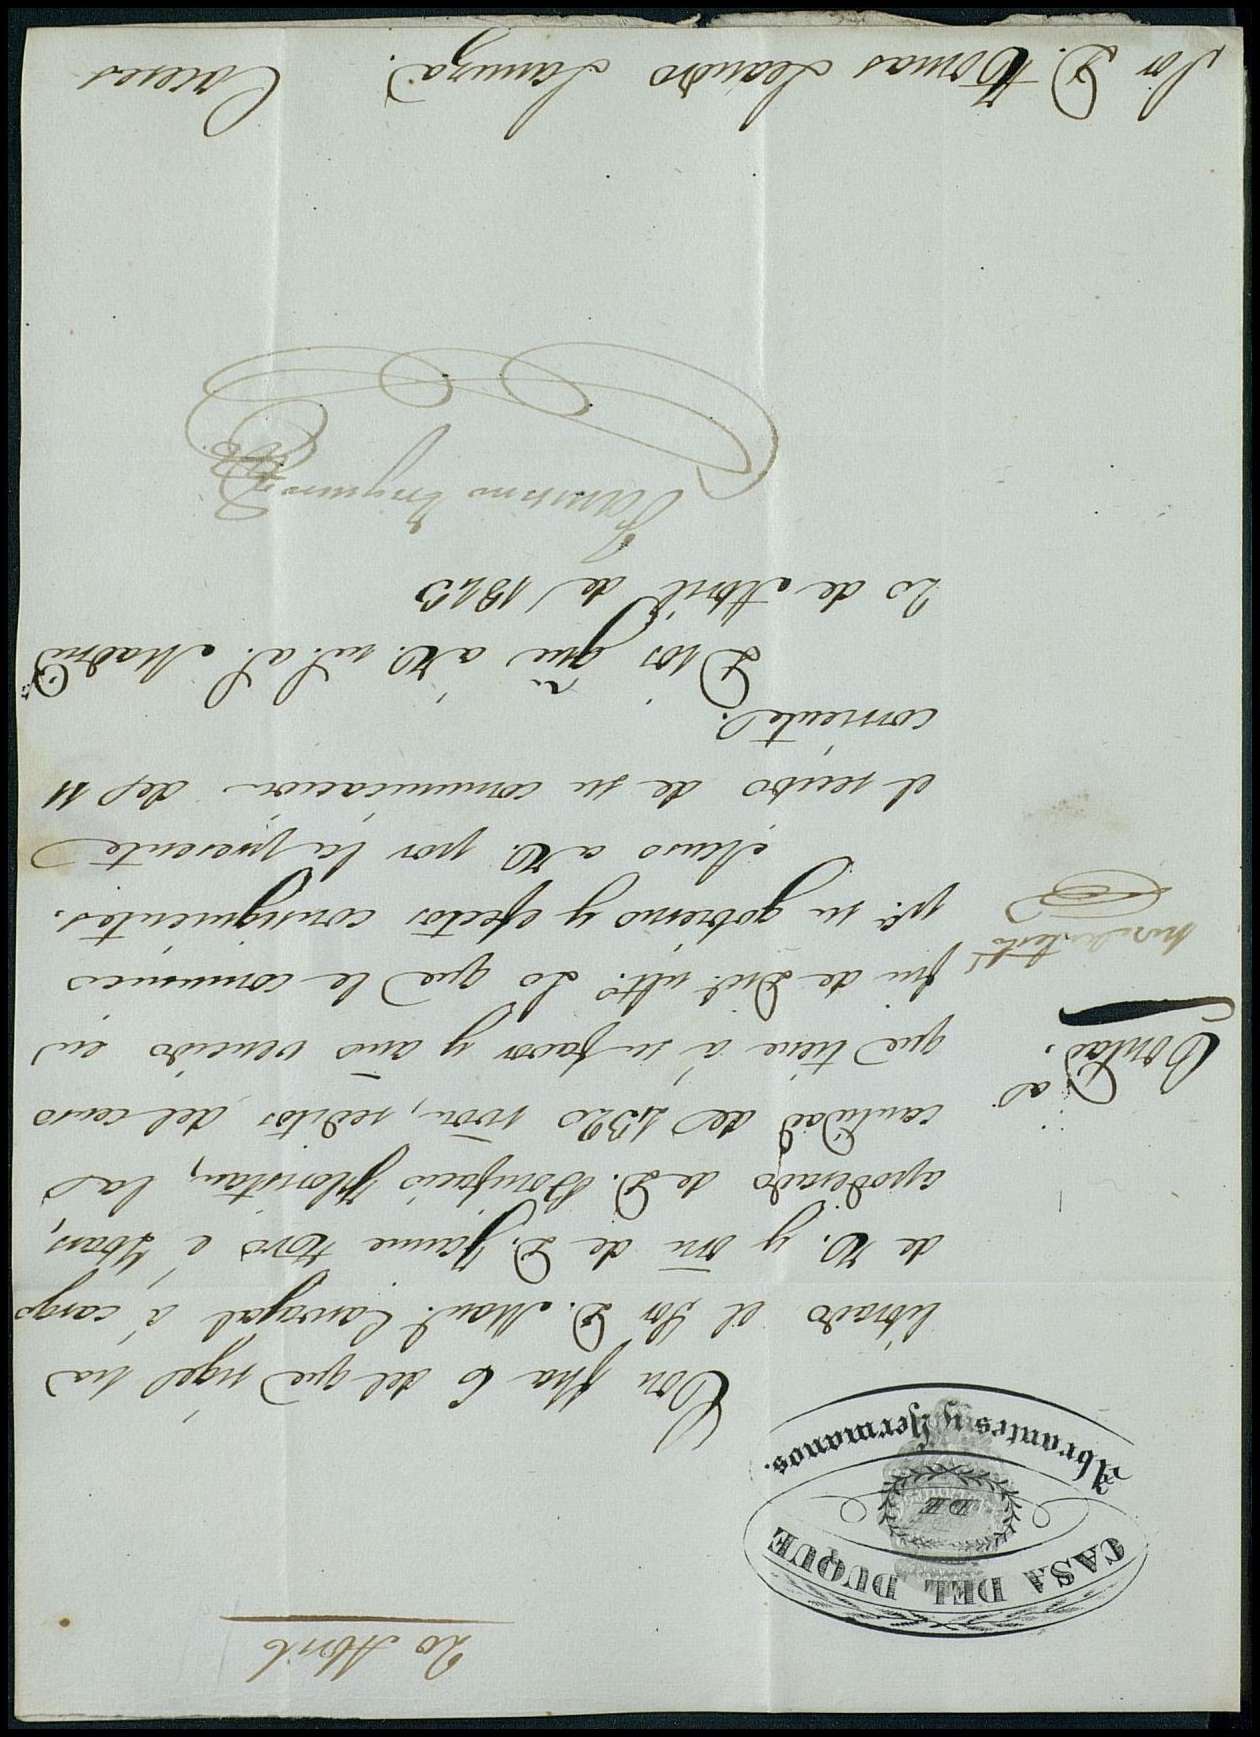 20 Abril
CASA DEL DUQUE
DE
Abrantes y Hermanos.
Con fha 6 del que rige ha
librado el Sor D. Man.l Carvajal á cargo
de V. y ōn de D. Jaime é
apoderado de D. Bonifacio las
cantidad de 1320 rōn, reditos del censo
Contad.
que tiene á su favor y año vencido en
fin de Dic.e ult.o Lo que le comunico
p.a su gobierno y efectos consiguientes.
Acuso a V. por la presente
el recibo de su comunicacion del 11
corriente.
Dios gūe á V. m.s a.s Madrid
20 de Abril de 1843
Sor D. Tomas Leandro Lanuza. Caceres